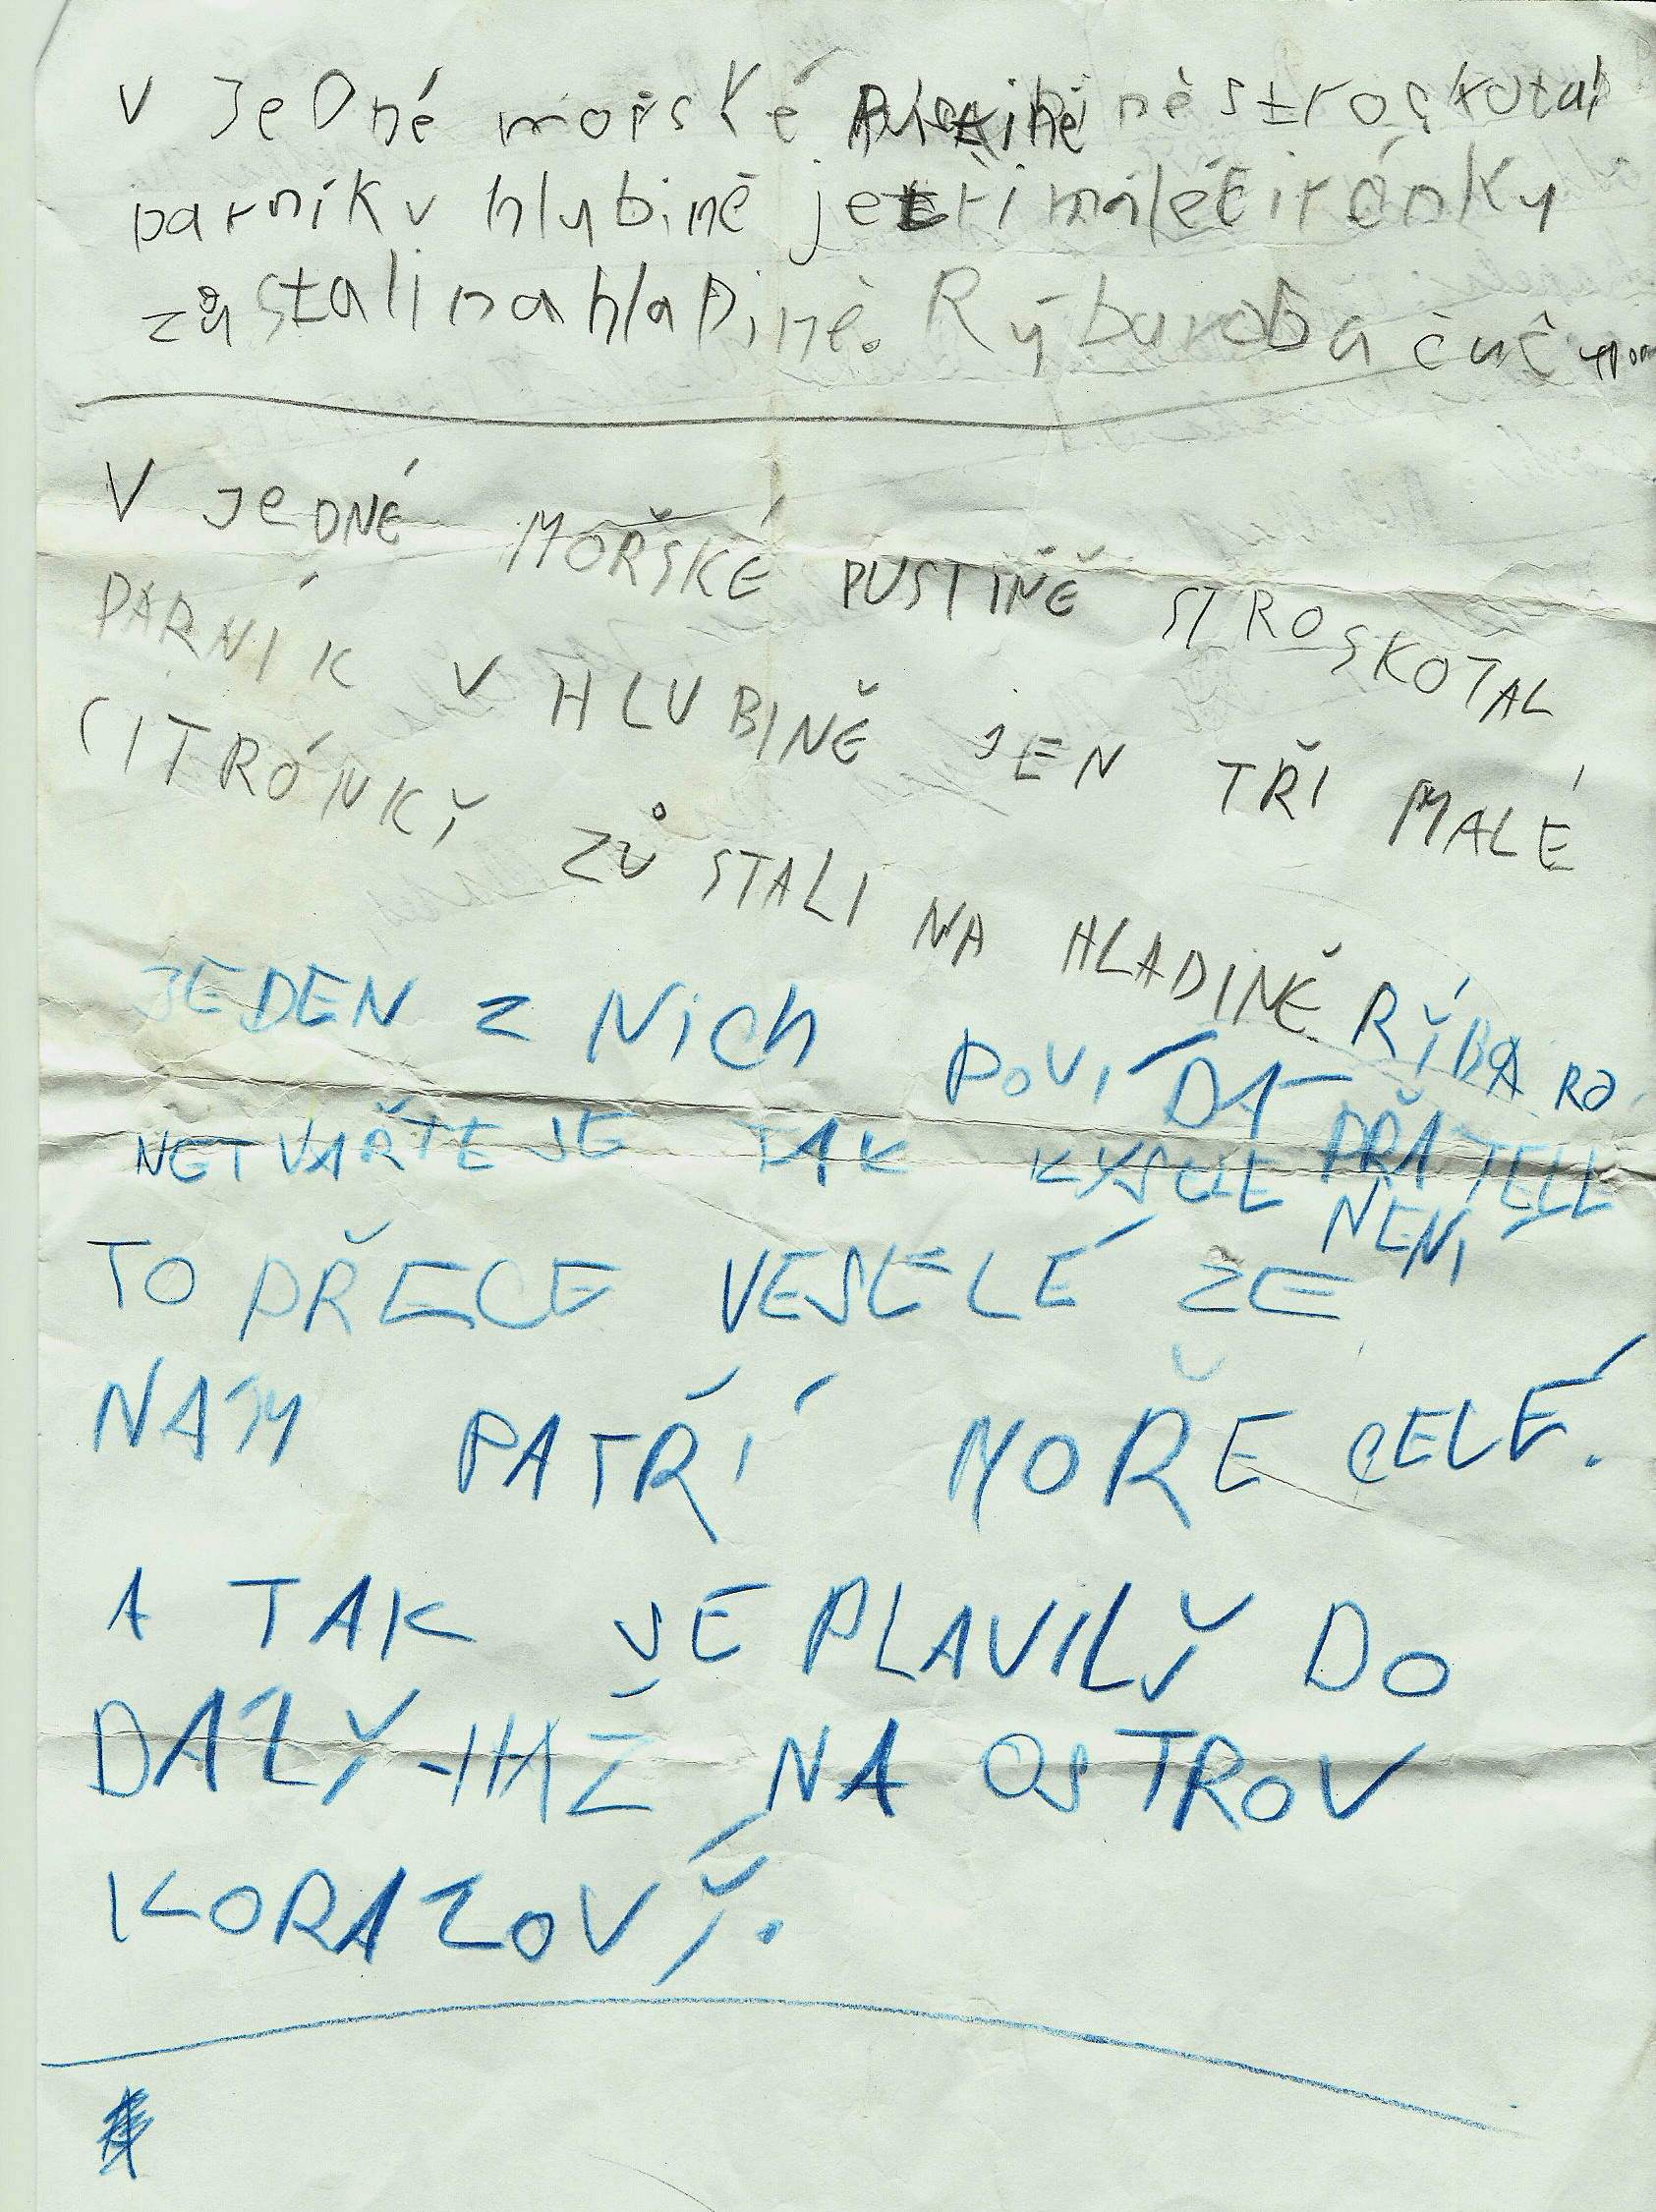 v jeDné mořské ně stroskotal
parník v hlubině je tři málé Citrónky
zůstali na hlaDině. Rýbaroba čuč
V JeDNÉ MOŘSKÉ PUSTINĚ STROSKOTAL
PARNÍK V HLUBINĚ JEN TŘI MALÉ
CITRÓNKY̌ ZŮSTALI NA HLADINĚ RY̌BA RO
JEDEN Z NiCh POVÍDÁ
NETVAŘTE SE TAK KYSELE PŘÁTELÉ
NENÍ
TO PŘECE VESELÉ ŽE
NÁM PATŘÍ MOŘE CELÉ.
A TAK SE PLAVILY̌ DO
DÁLY̌ HAŽ NA OSTROV
KORALOVÝ.